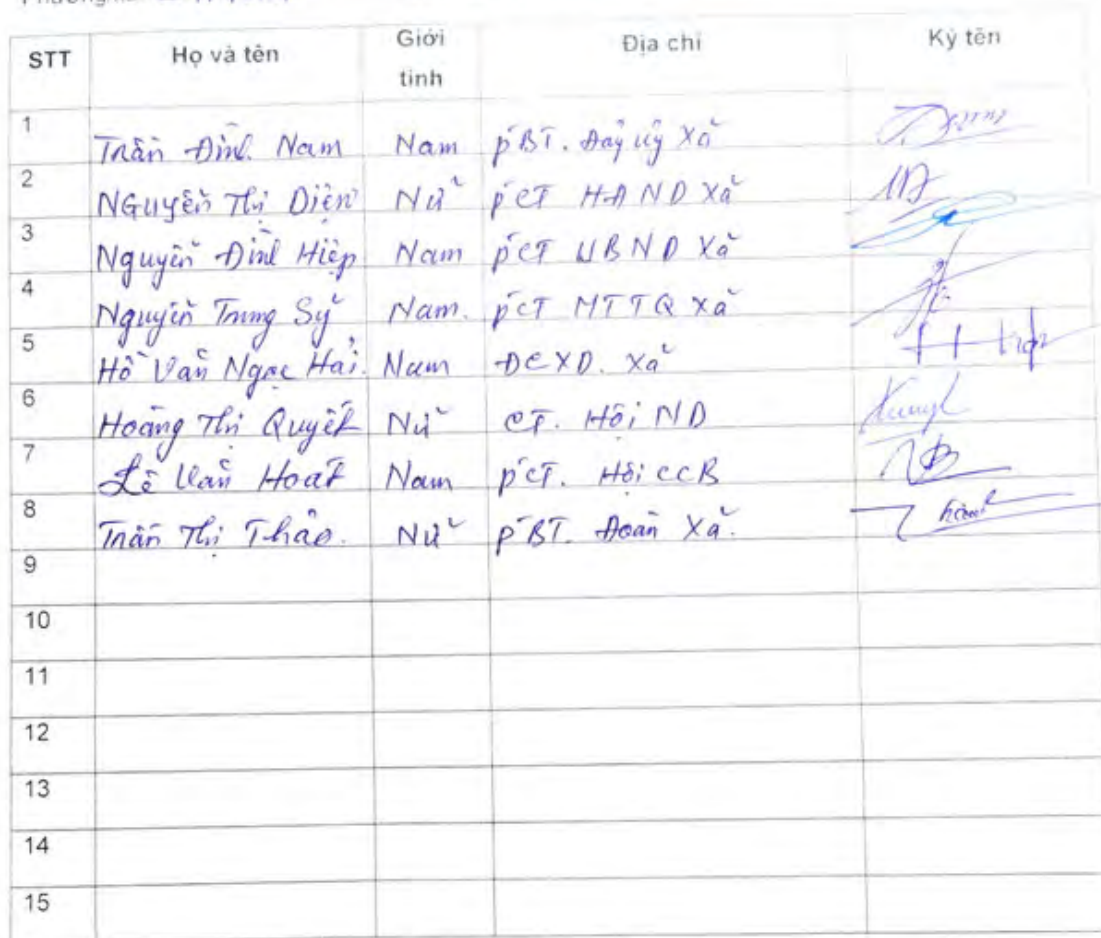 STT Họ và tên Giới tính Địa chỉ Ký tên
1 Trần Đình Nam Nam PBT. Đảng uỷ Xã
2 Nguyễn Thị Diện Nữ PCT HĐND Xã
3 Nguyễn Đình Hiệp Nam PCT UBND Xã
4 Nguyễn Trung Sỹ Nam. PCT MTTQ Xã
5 Hồ Văn Ngọc Hải. Nam ĐCXD. Xã
6 Hoàng Thị Quyết Nữ CT. Hội ND
7 Lê Văn Hoạt Nam PCT. Hội CCB
8 Trần Thị Thảo. Nữ PBT. Đoàn Xã.
9
10
11
12
13
14
15